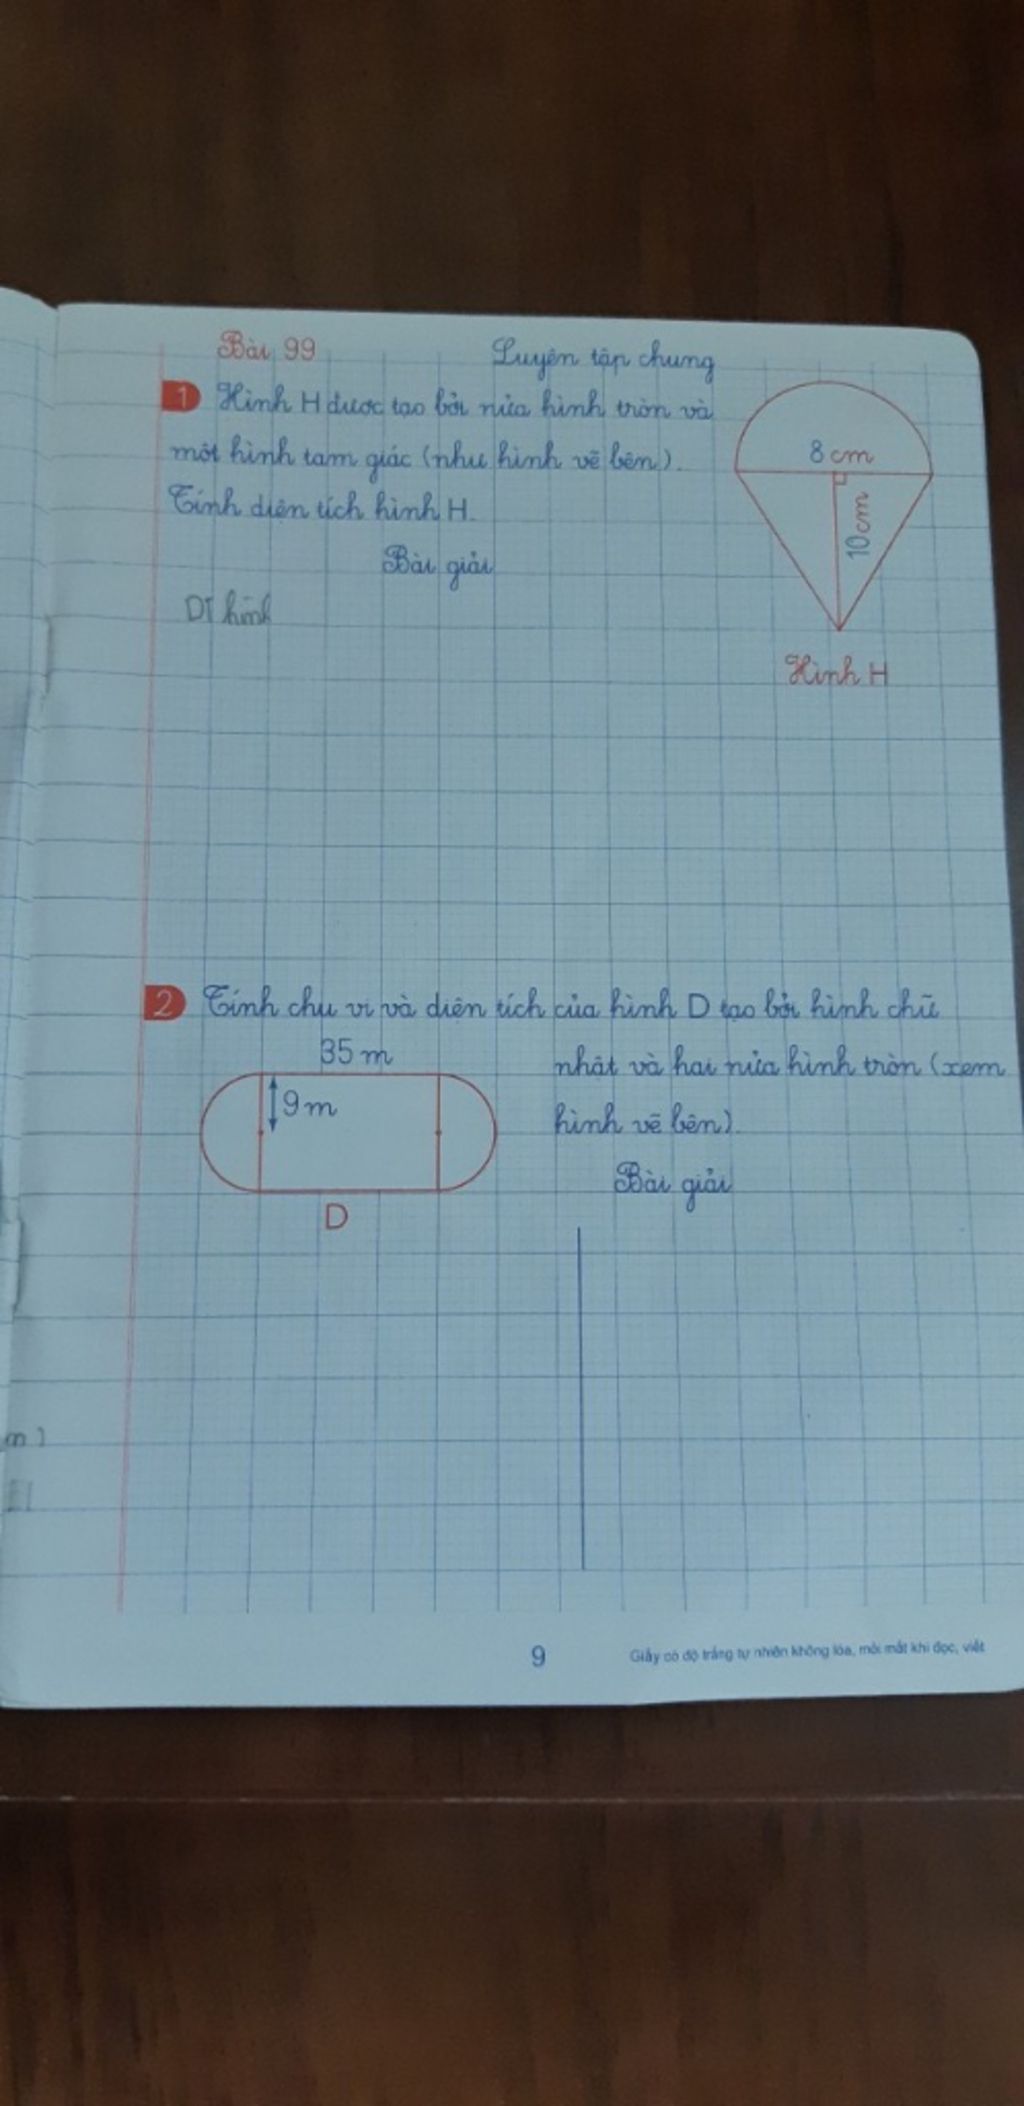 Bài 99
Luyện tập chung
1 Hình H được tạo bởi nửa hình tròn và
một hình tam giác (như hình vẽ bên).
Tính diện tích hình H.
Bài giải
DT hình
8 cm
10 cm
Hình H
2 Tính chu vi và diện tích của hình D tạo bởi hình chữ
nhật và hai nửa hình tròn (xem
hình vẽ bên).
35 m
9 m
D
Bài giải
m)
9
Giấy có độ trắng tự nhiên không lóa, mỏi mắt khi đọc, viết